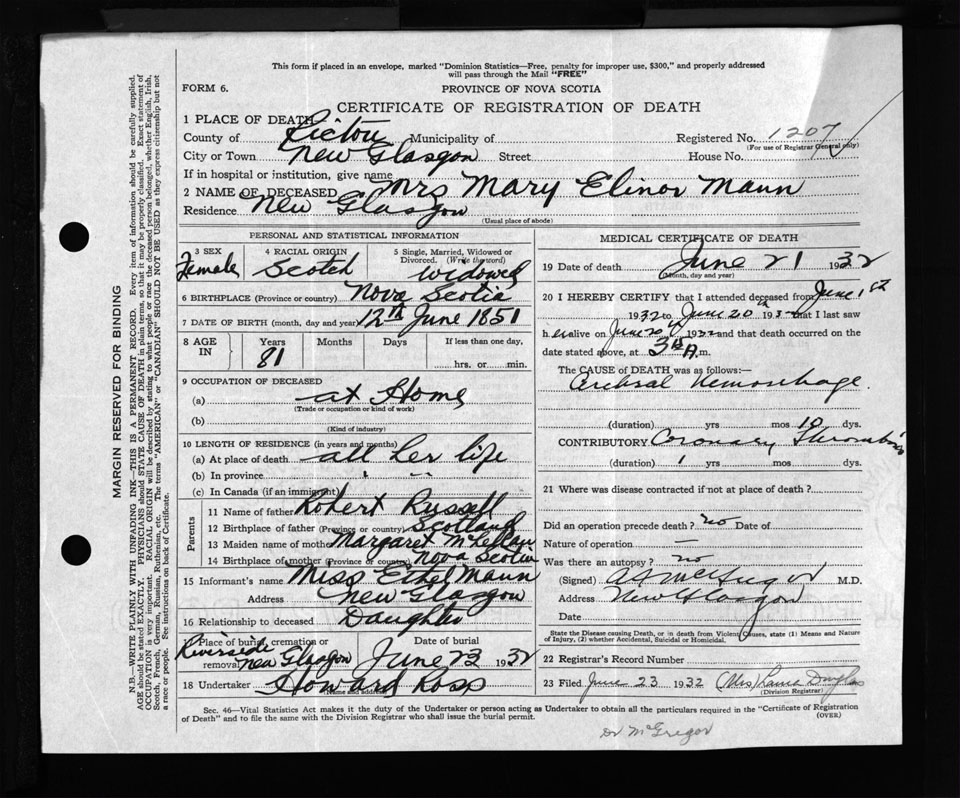 This form if placed in an envelope, marked "Dominion Statistics—Free, penalty for improper use, $300," and properly addressed
will pass through the Mail "FREE"
FORM 6.
PROVINCE OF NOVA SCOTIA
CERTIFICATE OF REGISTRATION OF DEATH
1 PLACE OF DEATH
County of Pictou Municipality of Registered No. 1207
(For use of Registrar General only)
City or Town New Glasgow Street House No.
If in hospital or institution, give name
2 NAME OF DECEASED Mrs Mary Elinor Mann
Residence New Glasgow
(Usual place of abode)
PERSONAL AND STATISTICAL INFORMATION
3 SEX Female
4 RACIAL ORIGIN Scotch
5 Single, Married, Widowed or Divorced. (Write the word) Widowed
6 BIRTHPLACE (Province or country) Nova Scotia
7 DATE OF BIRTH (month, day and year) 12th June 1851
8 AGE IN Years Months Days If less than one day,
81 hrs. or min.
9 OCCUPATION OF DECEASED
(a) at Home
(Trade or occupation or kind of work)
(b)
(Kind of industry)
10 LENGTH OF RESIDENCE (in years and months)
(a) At place of death all her life
(b) In province
(c) In Canada (if an immigrant)
Parents
11 Name of father Robert Russell
12 Birthplace of father (Province or country) Scotland
13 Maiden name of mother Margaret McLellan
14 Birthplace of mother (Province or country) Nova Scotia
15 Informant's name Miss Ethel Mann
Address New Glasgow
16 Relationship to deceased Daughter
17 Place of burial, cremation or removal Riverside New Glasgow
Date of burial June 23 1932
18 Undertaker Howard Ross
MEDICAL CERTIFICATE OF DEATH
19 Date of death June 21 1932
(Month, day and year)
20 I HEREBY CERTIFY that I attended deceased from June 1st
1932 to June 20th 1932 that I last saw
her alive on June 20th 1932 and that death occurred on the
date stated above, at 3 A.m.
The CAUSE of DEATH was as follows:
Cerebral Hemorrhage.
(duration) yrs mos 10 dys.
CONTRIBUTORY Coronary Thrombosis
(duration) 1 yrs mos dys.
21 Where was disease contracted if not at place of death?
Did an operation precede death? no Date of
Nature of operation —
Was there an autopsy? no
(Signed) McGregor M.D.
Address New Glasgow
Date
State the Disease causing Death, or in death from Violent Causes, state (1) Means and Nature
of Injury, (2) whether Accidental, Suicidal or Homicidal.
22 Registrar's Record Number
23 Filed June 23 1932 (Mrs) Douglas
(Division Registrar)
Sec. 46—Vital Statistics Act makes it the duty of the Undertaker or person acting as Undertaker to obtain all the particulars required in the "Certificate of Registration
of Death" and to file the same with the Division Registrar who shall issue the burial permit.
(OVER)
Dr McGregor
MARGIN RESERVED FOR BINDING
N.B.—WRITE PLAINLY WITH UNFADING INK—THIS IS A PERMANENT RECORD. Every item of information should be carefully supplied.
AGE should be stated EXACTLY. PHYSICIANS should STATE CAUSE OF DEATH in plain terms, so that it may be properly classified. Exact statement of
OCCUPATION is very important. RACIAL ORIGIN will be described by stating to what people or race the deceased person belonged, whether English, Irish,
Scotch, French, German, Russian, Ruthenian, etc. The terms "AMERICAN" or "CANADIAN" SHOULD NOT BE USED as they express citizenship but not
a race or people. See instructions on back of Certificate.